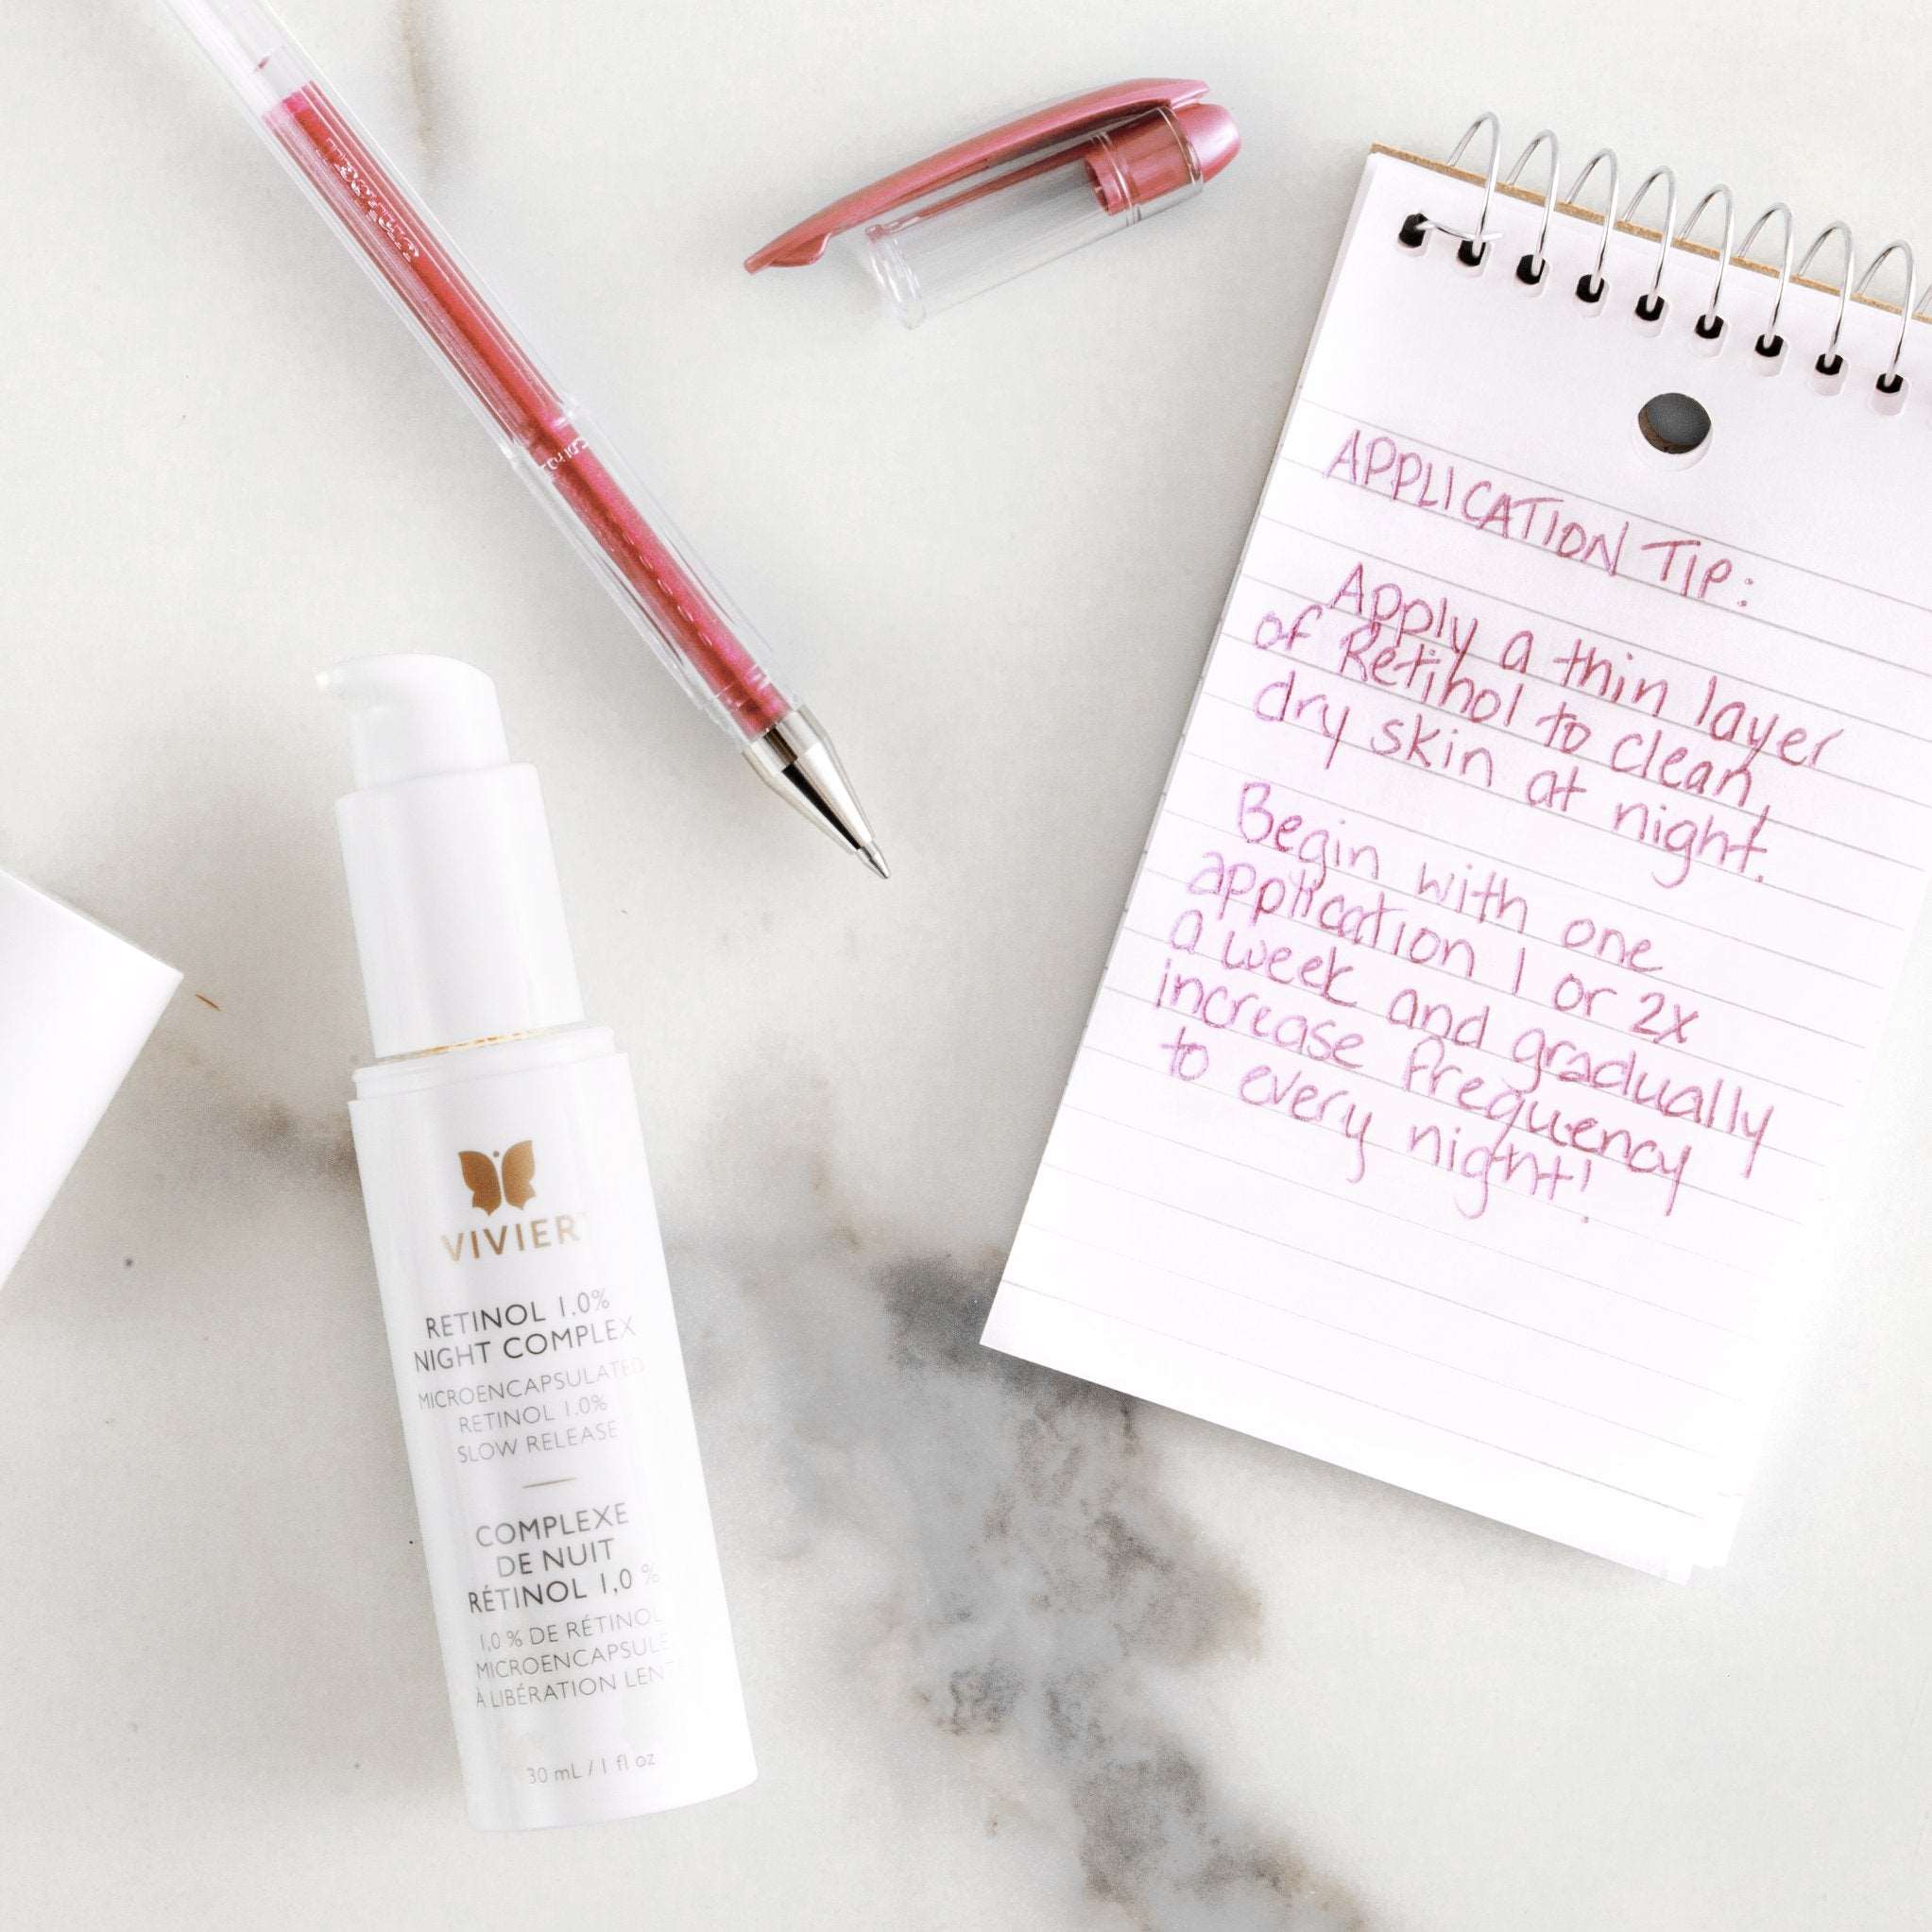 APPLICATION TIP:
Apply a thin layer
of Retinol to clean,
dry skin at night.
Begin with one
application 1 or 2x
a week and gradually
increase frequency
to every night!
VIVIER
RETINOL 1.0%
NIGHT COMPLEX
MICROENCAPSULATED
RETINOL 1.0%
SLOW RELEASE
COMPLEXE
DE NUIT
RÉTINOL 1,0 %
1,0 % DE RÉTINOL
MICROENCAPSULÉ
À LIBÉRATION LENT
30 mL / 1 fl oz